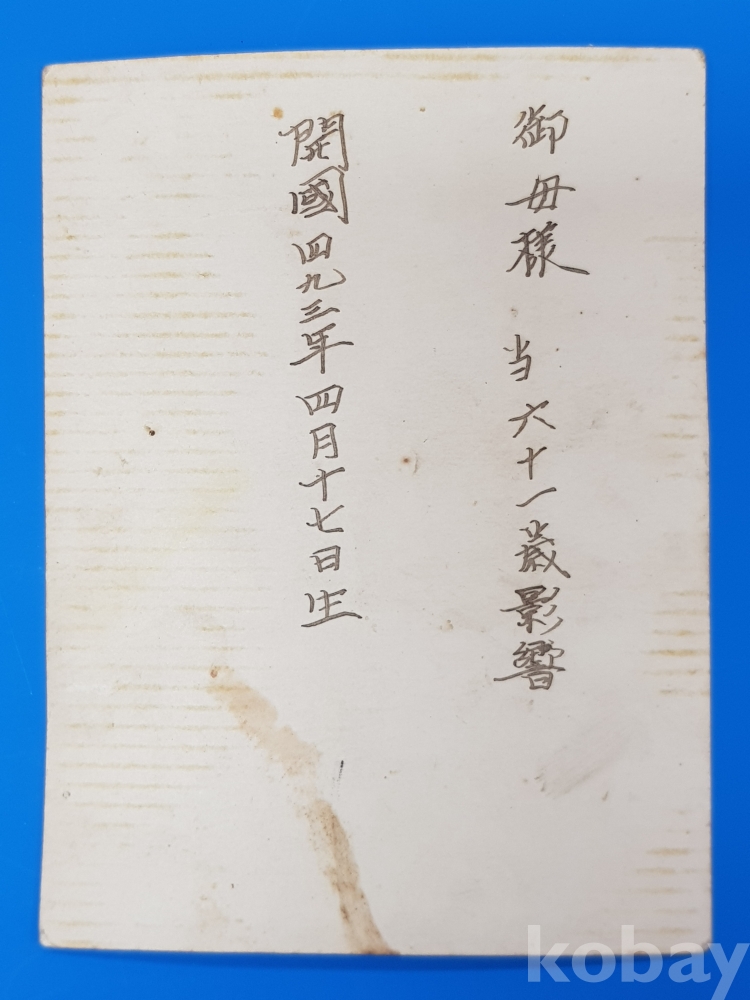 御母樣 当六十一歳影響
開國四九三年四月十七日生
kobay